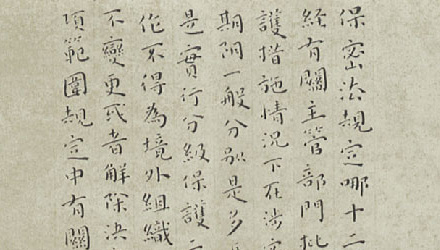 保密法規定哪十二
經有關主管部門批
護措施情況下在涉
期限一般分别是多
是實行分級保護
作不得為境外組織
不變更或者解除決
項範圍規定中有關